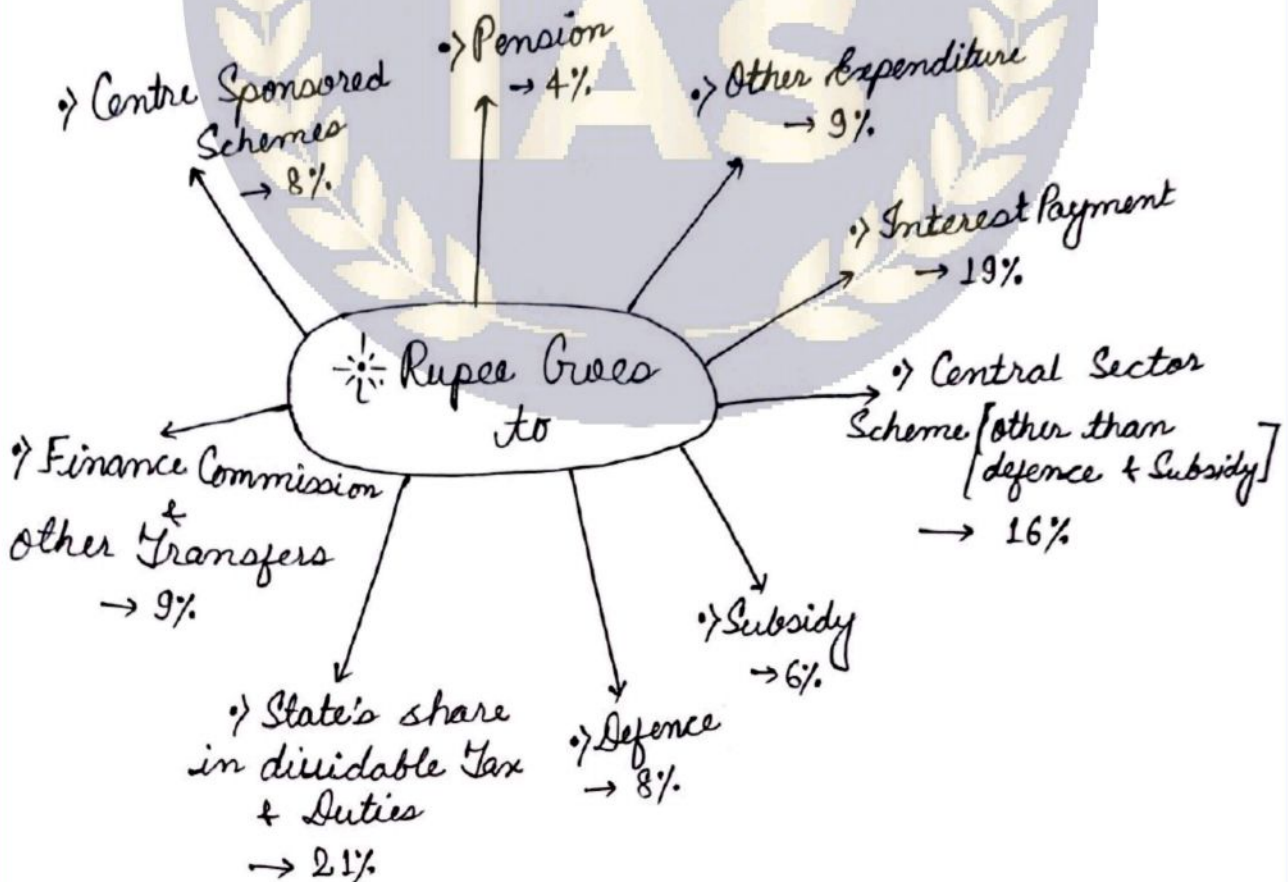 IAS
•) Pension
→ 4%
•) Centre Sponsored
Schemes
→ 8%
•) Other Expenditure
→ 9%
•) Interest Payment
→ 19%
Rupee Goes
to
•) Central Sector
Scheme [other than
defence & Subsidy]
→ 16%
•) Finance Commission
&
other Transfers
→ 9%
•) Subsidy
→ 6%
•) State's share
in dividable Tax
& Duties
→ 21%
•) Defence
→ 8%